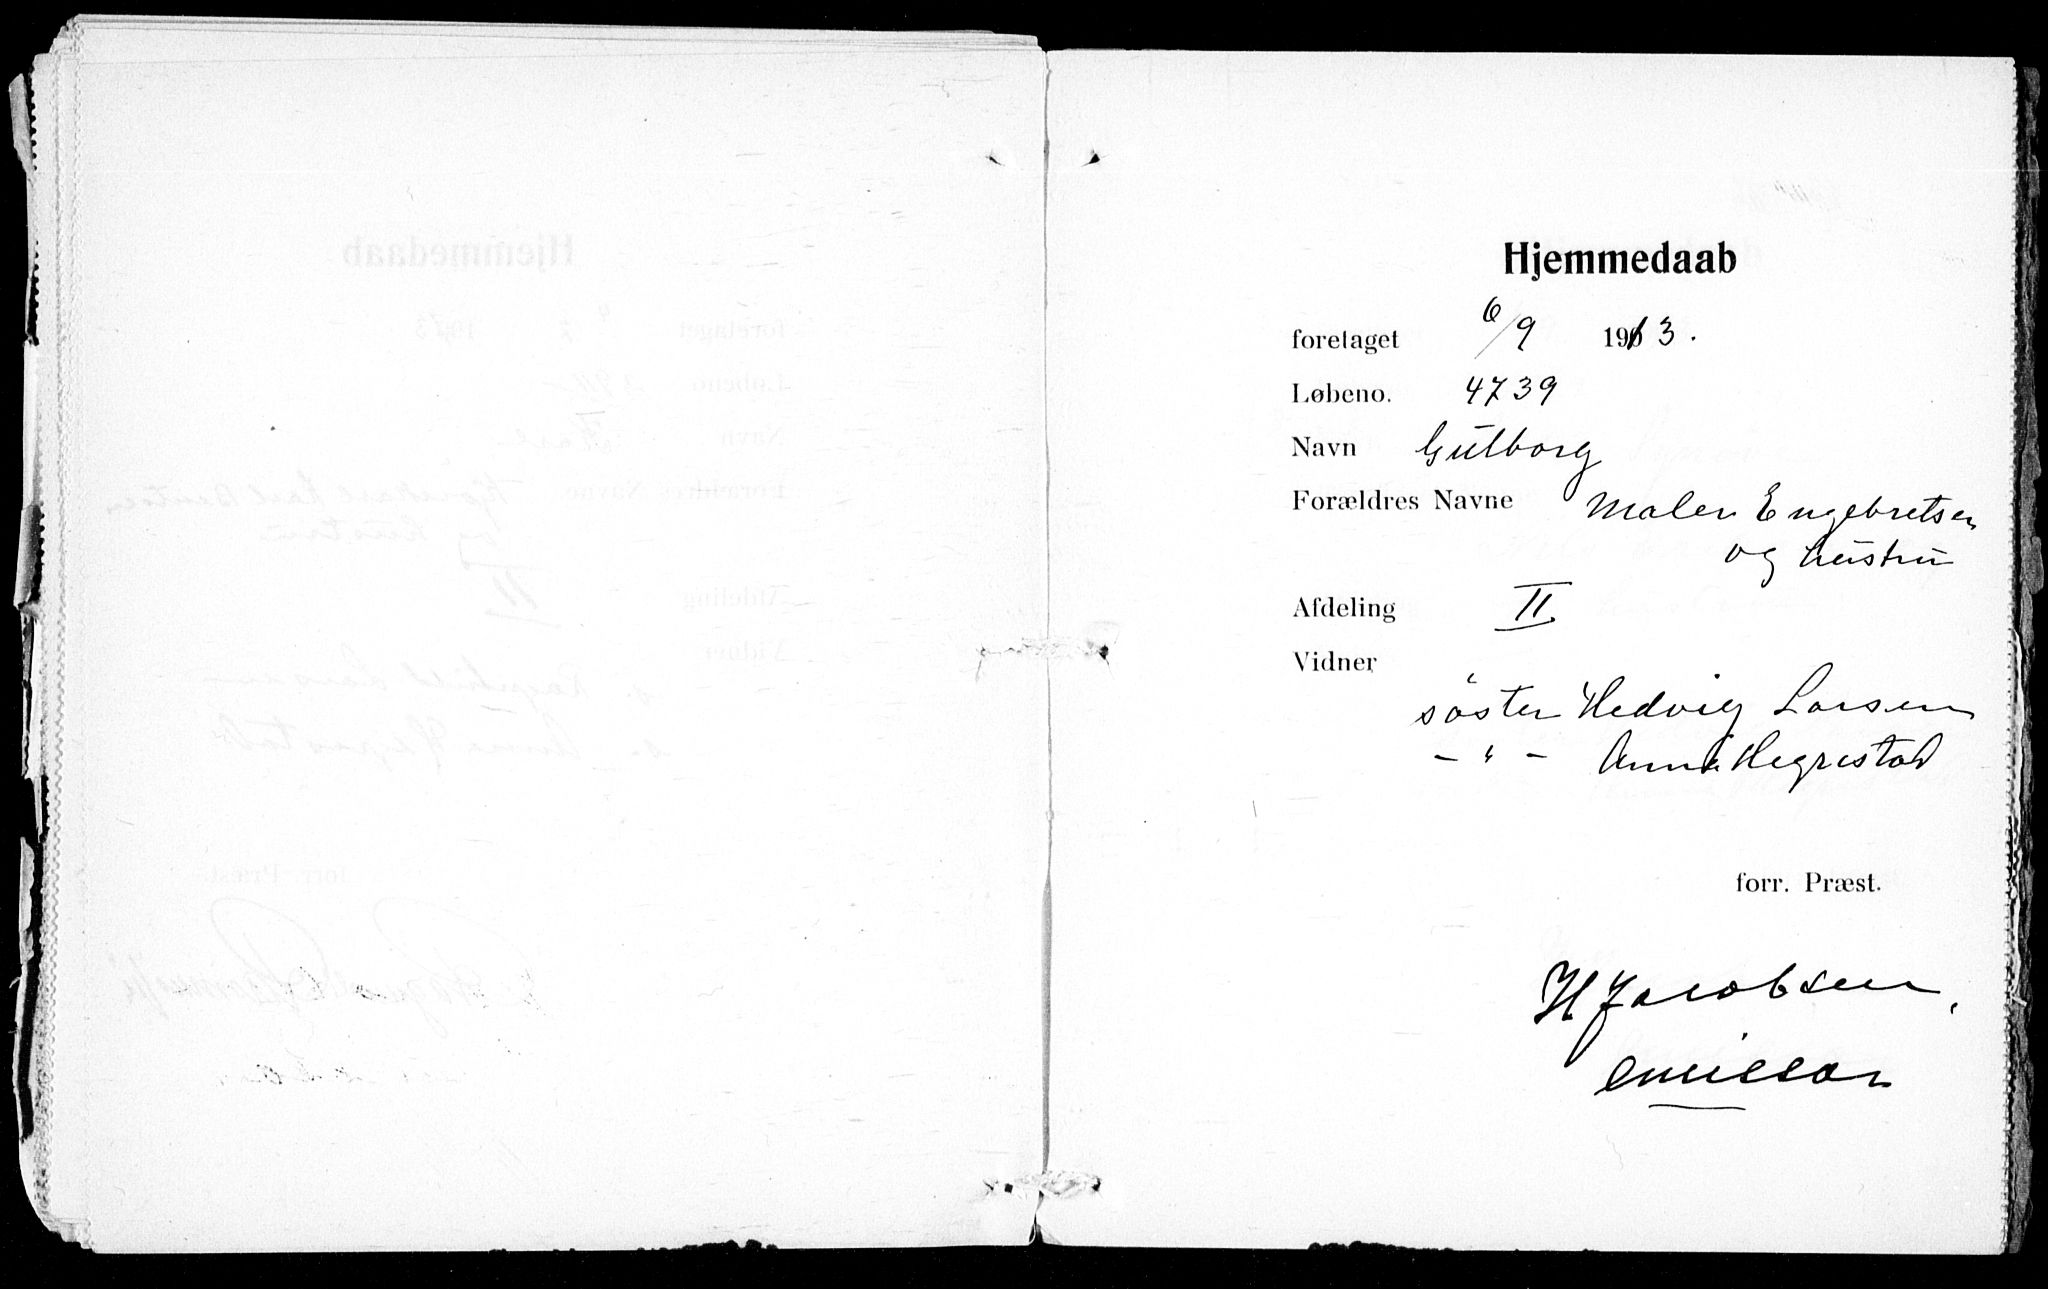 Hjemmedaab
foretaget 6/9 1913.
Løbeno. 4739
Navn Gulborg
Forældres Navne Maler Engebretsen
og hustru
Afdeling II
Vidner
söster Hedvig Larsen
- " - Anna Hegrestad
forr. Præst.
H Jacobsen,